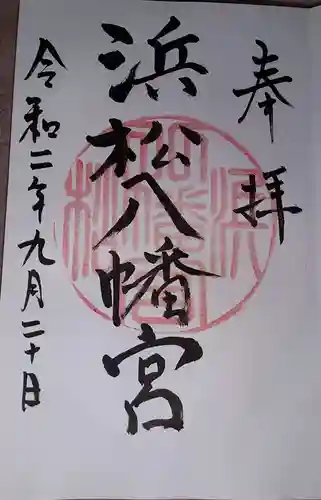 奉拝
浜松八幡宮
令和二年九月二十日